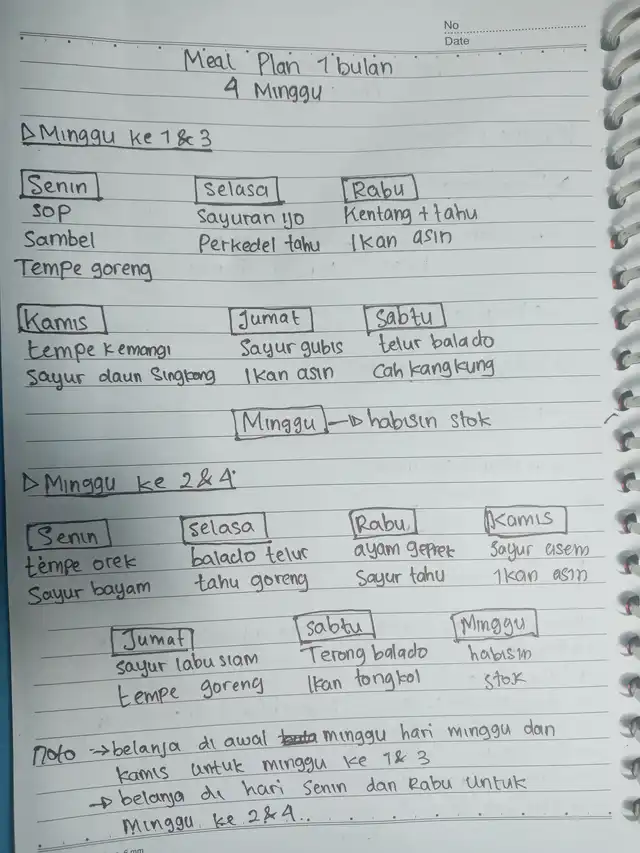 No
Date
Meal Plan 1 bulan
4 Minggu
▷ Minggu ke 1 & 3
Senin Selasa Rabu
SOP Sayuran ijo Kentang + tahu
Sambel Perkedel tahu Ikan asin
Tempe goreng
Kamis Jumat Sabtu
tempe kemangi Sayur gubis telur balado
Sayur daun Singkong Ikan asin Cah kangkung
Minggu → habisin stok
▷ Minggu ke 2 & 4.
Senin Selasa Rabu Kamis
tempe orek balado telur ayam geprek Sayur asem
Sayur bayam tahu goreng Sayur tahu Ikan asin
Jumat Sabtu Minggu
Sayur labu siam Terong balado habisin
tempe goreng Ikan tongkol stok
noto → belanja di awal minggu hari minggu dan
kamis untuk minggu ke 1 & 3
→ belanja di hari Senin dan Rabu untuk
Minggu ke 2 & 4..